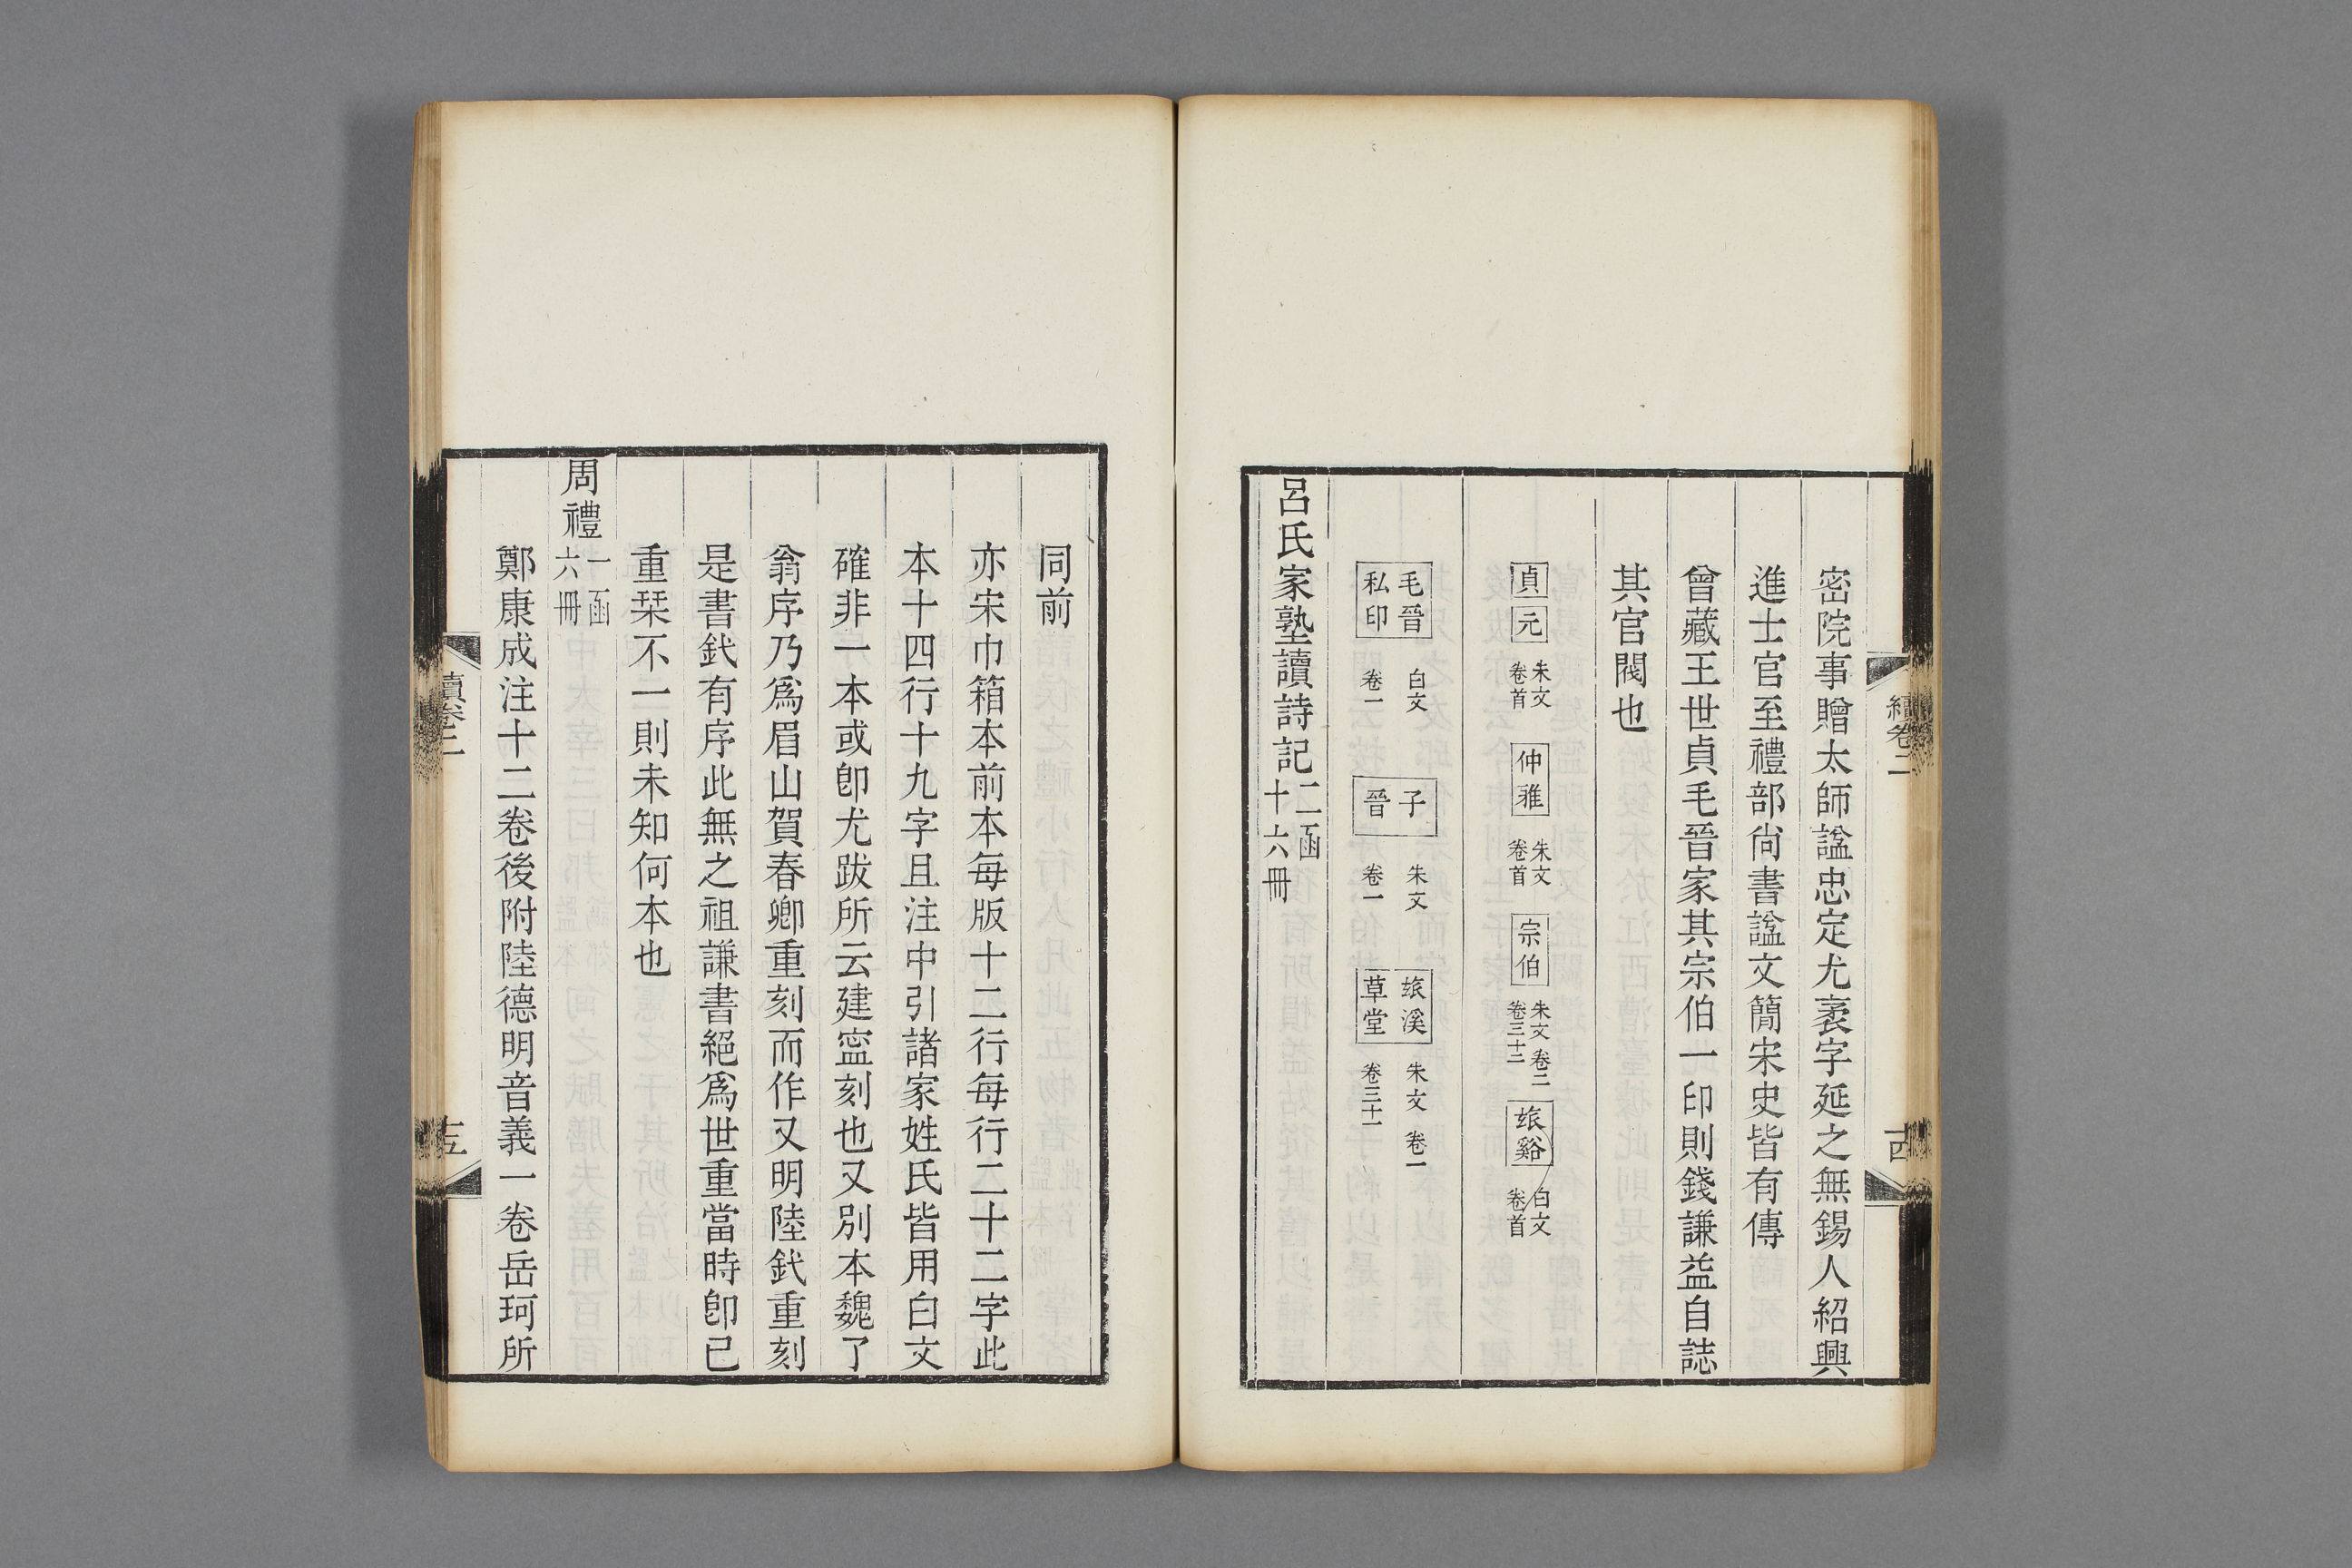 密院事贈太師諡忠定尤袤字延之無錫人紹興
進士官至禮部尙書諡文簡宋史皆有傳
曾藏王世貞毛晉家其宗伯一印則錢謙益自誌
其官閥也
貞元 朱文 卷首 仲雅 朱文 卷首 宗伯 朱文 卷二 卷三十二 谿 白文 卷首
毛晉私印 白文 卷一 子晉 朱文 卷一 溪草堂 朱文 卷一 卷三十一
呂氏家塾讀詩記 二函 十六冊
續卷二
十四
同前
亦宋巾箱本前本每版十二行每行二十二字此
本十四行十九字且注中引諸家姓氏皆用白文
確非一本或卽尤跋所云建寍刻也又別本魏了
翁序乃爲眉山賀春卿重刻而作又明陸釴重刻
是書釴有序此無之祖謙書絕爲世重當時卽已
重棻不一則未知何本也
周禮 一函 六冊
鄭康成注十二卷後附陸德明音義一卷岳珂所
續卷二
十五